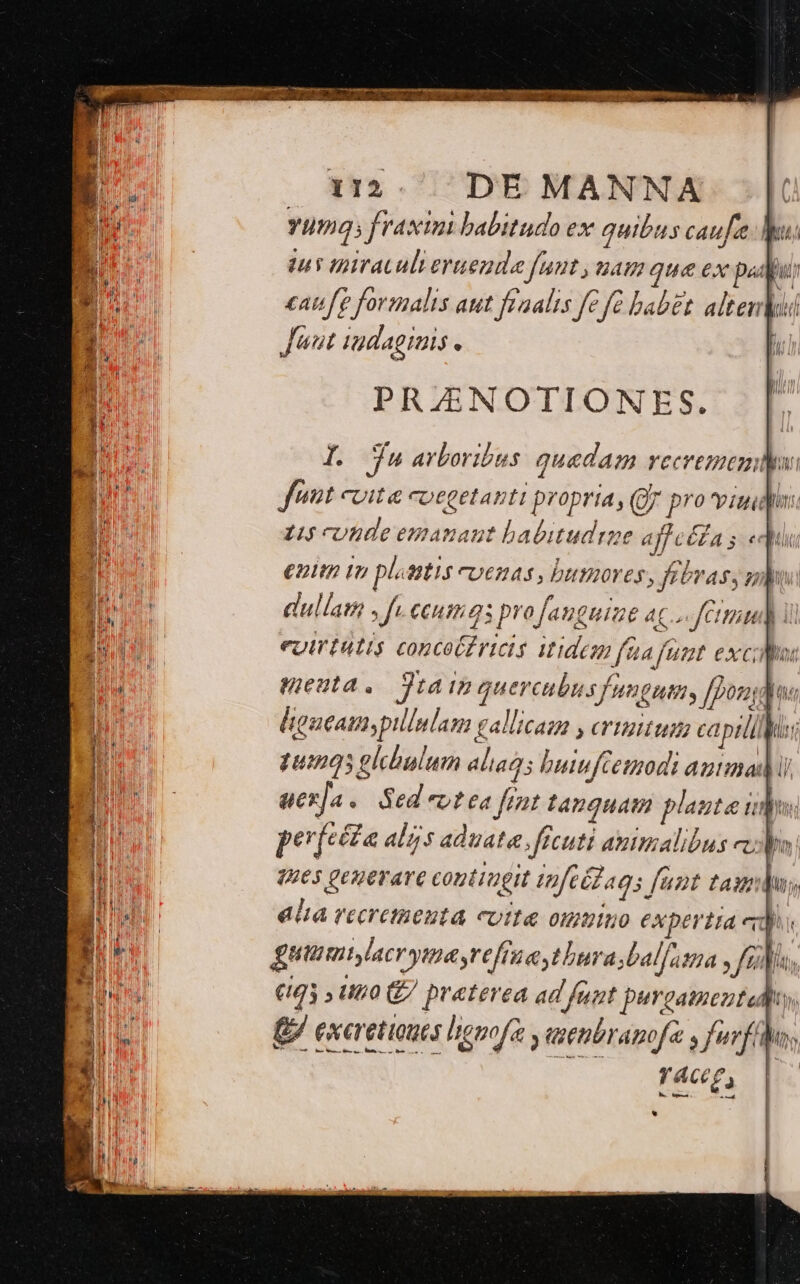 112 DE MANNA
rumq; fraxini habitudo ex quibus causæ
ius miraculi eruendæ sunt, nam quæ ex
causæ formalis aut finalis se se habēt
sunt indaginis.
PRÆNOTIONES.
I. In arboribus quædam
sunt vitæ vegetanti propria, & pro
tis vnde emanant habitudine affecta;
enim in plantis venas, humores, fibras,
dullam, succumq; pro sanguine ac
virtutis concoctricis itidem sua sunt
menta. Ita in quercubus fungum,
ligneam, pillulam gallicam, crinitum
tumq; glebulum aliaq; huiuscemodi
uersa. Sed vt ea sint tanquam plantæ
perfectæ alijs adnatæ, sicuti animalibus
nes generare contingit infectaq; sunt
alia recrementa vitæ omnino expertia
gummi, lacrymæ, resinæ, thura, balsama,
ciq;, imo & præterea ad sunt
& excretiones lignosæ, menbranosæ,
raceę,